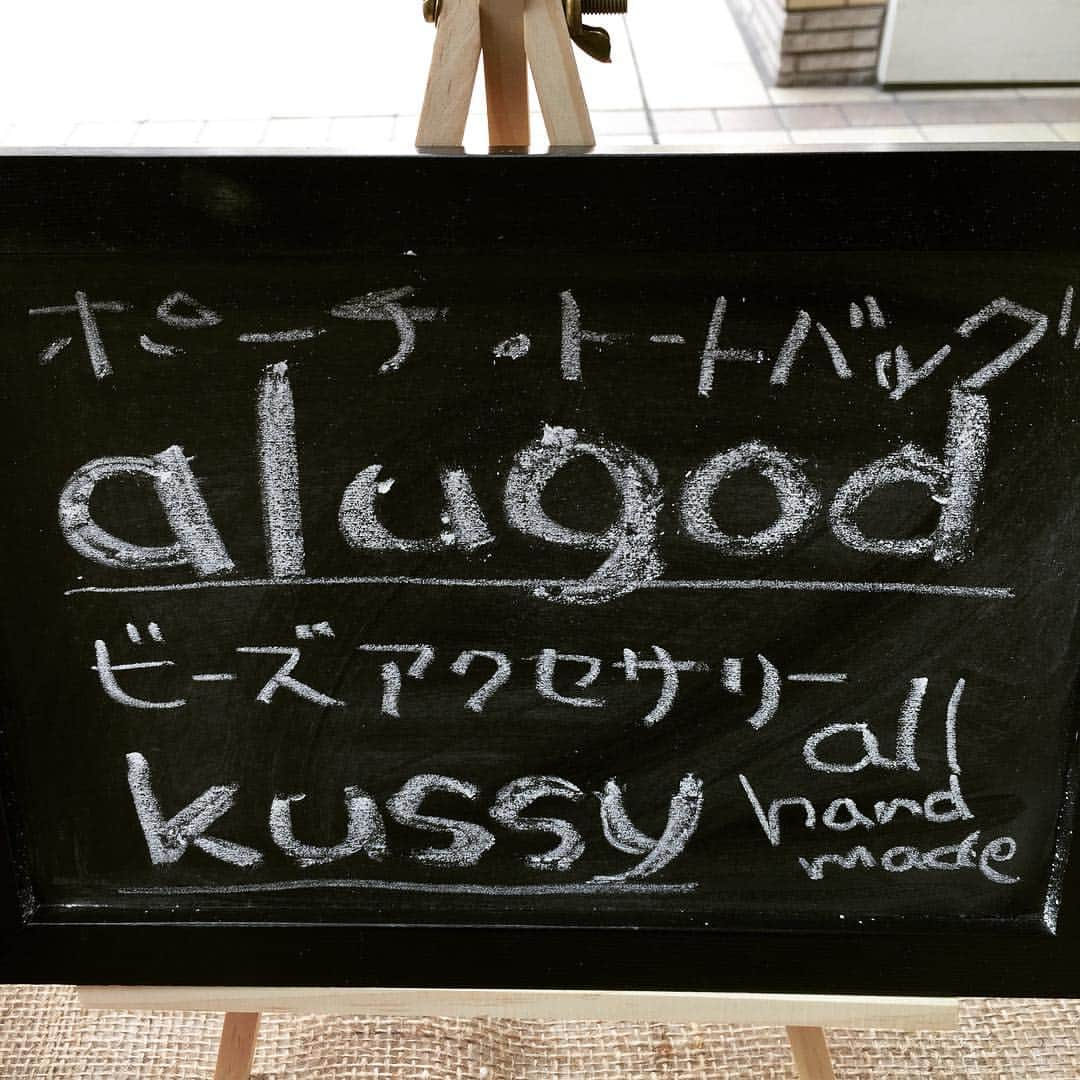 ポーチ・トートバッグ
alugod
ビーズアクセサリー
kussy
all
hand
made